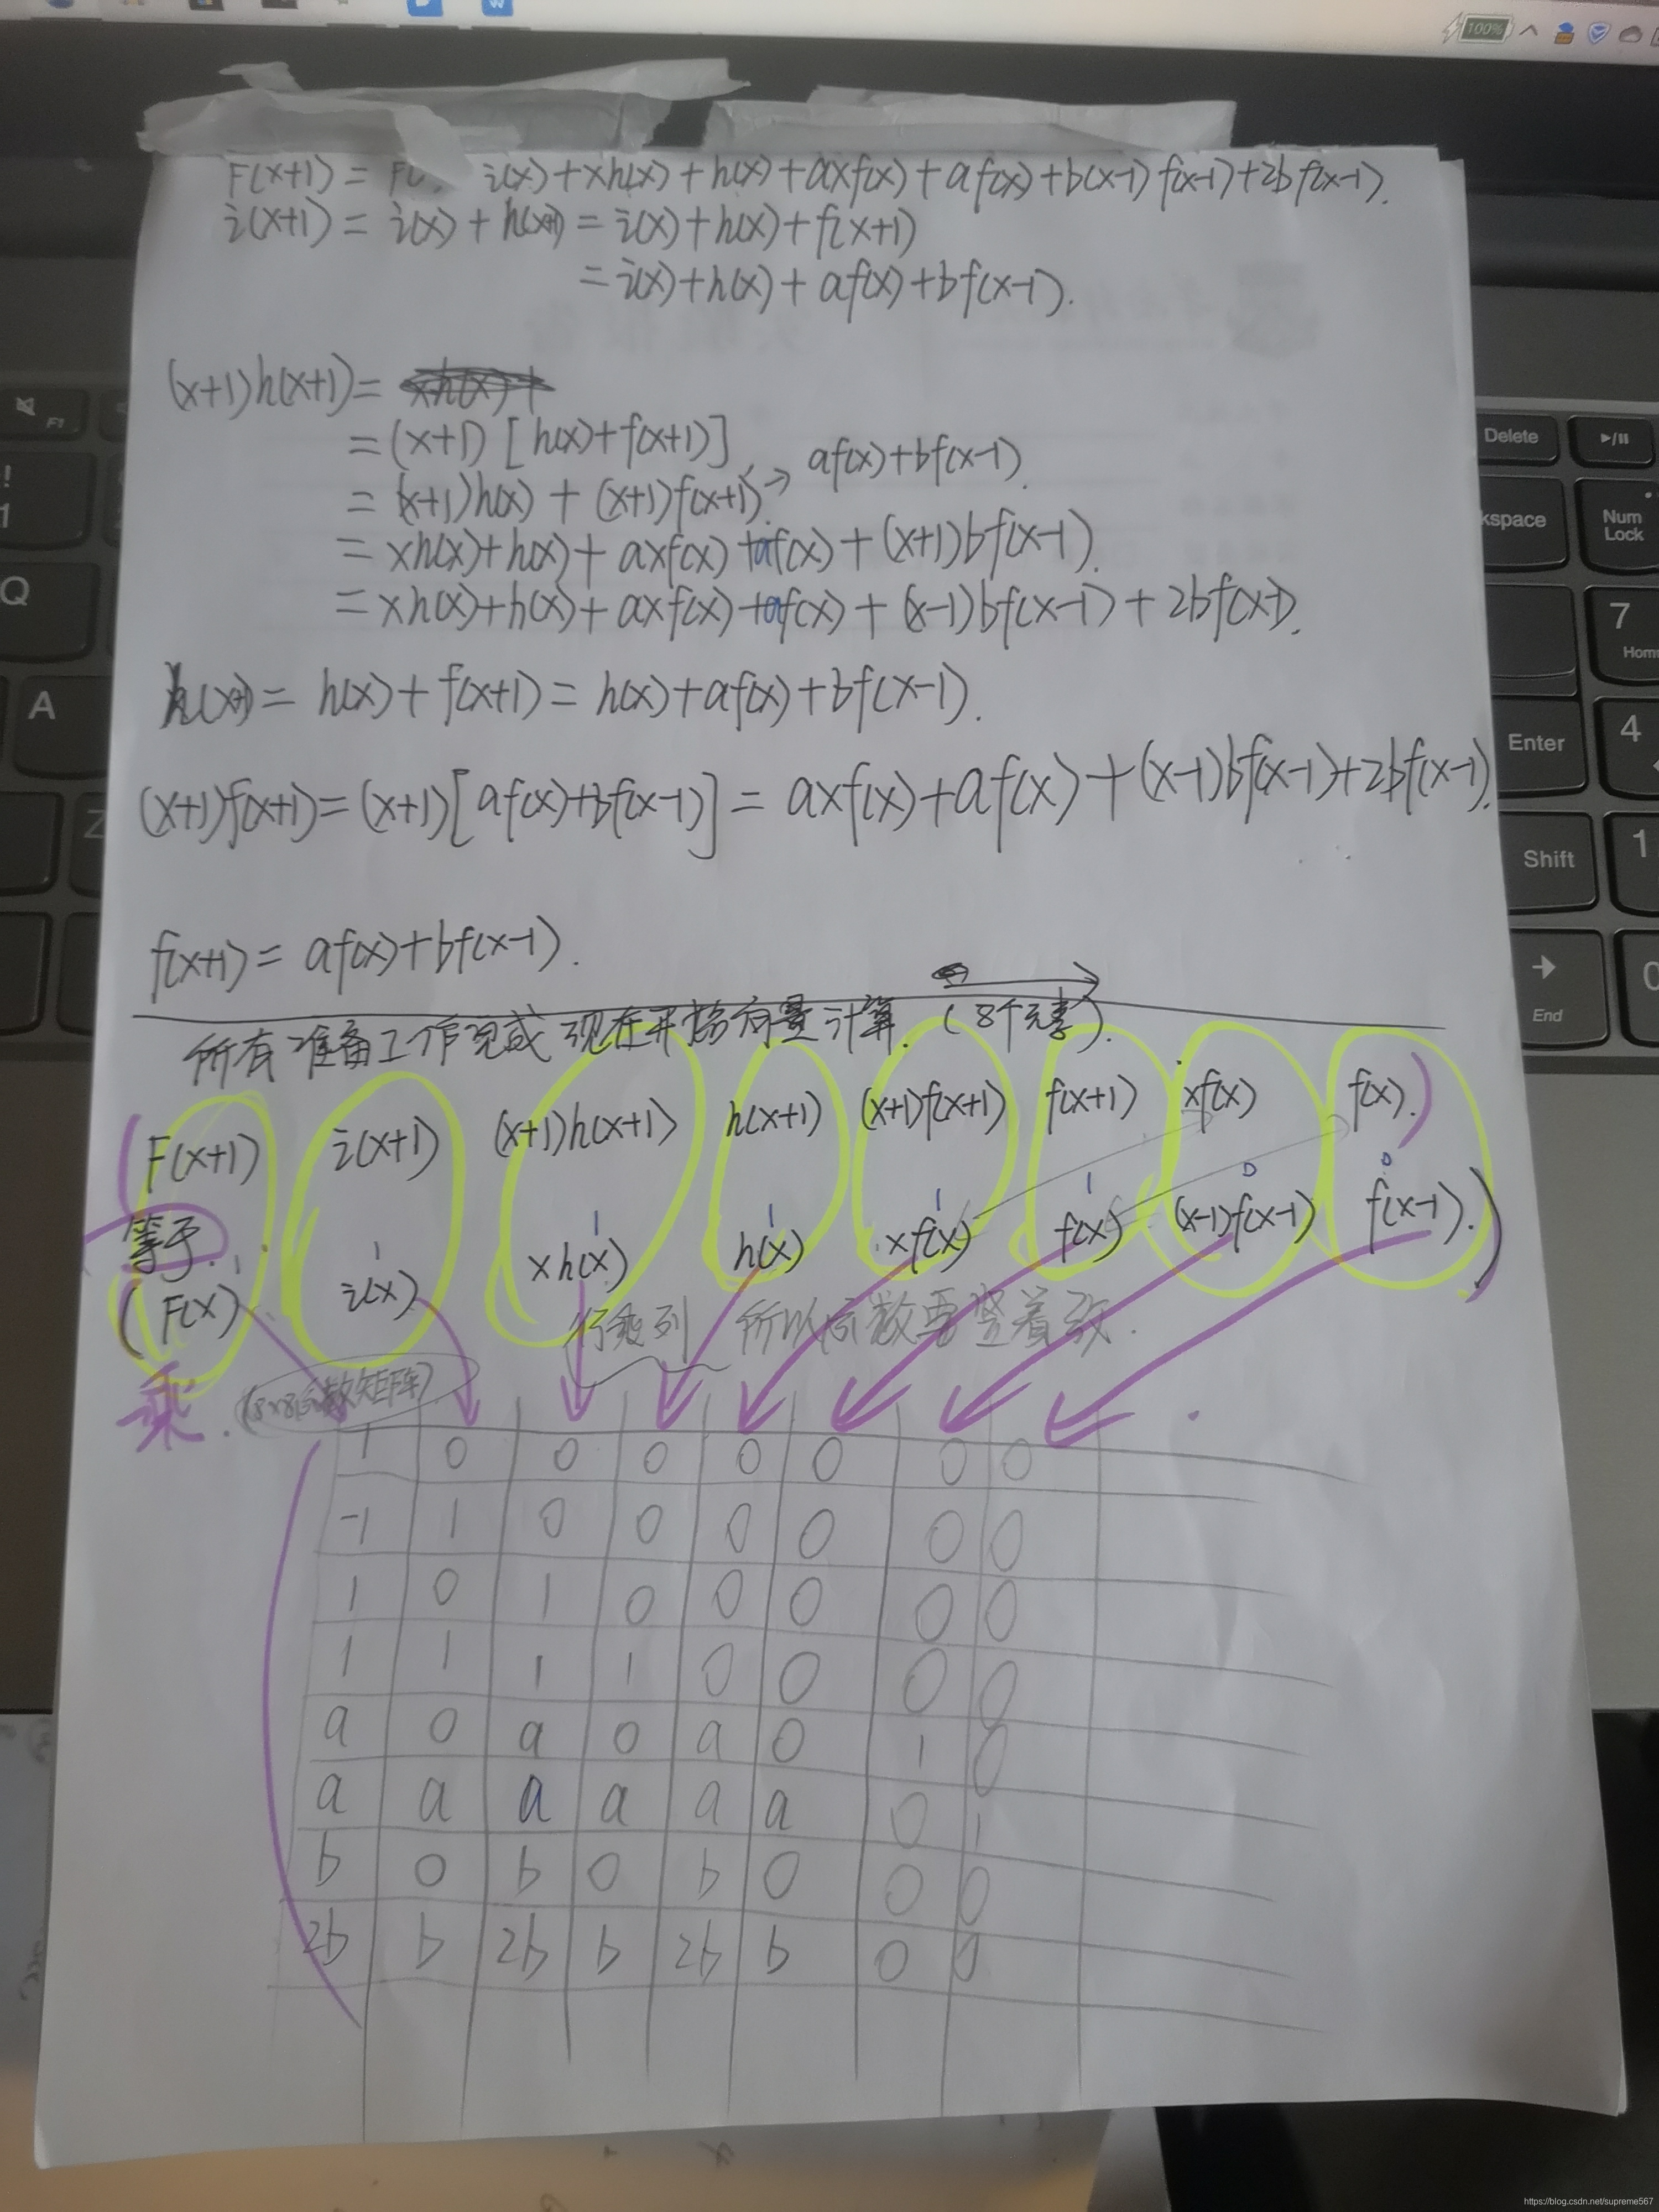 100%
F(x+1) = i(x)+xh(x)+h(x)+axf(x)+af(x)+b(x-1)f(x-1)+2bf(x-1).
i(x+1) = i(x)+h(x+1) = i(x)+h(x)+f(x+1)
= i(x)+h(x)+af(x)+bf(x-1).
(x+1)h(x+1)= xh(x)+
=(x+1)[h(x)+f(x+1)]
af(x)+bf(x-1).
=(x+1)h(x)+(x+1)f(x+1).→
=xh(x)+h(x)+axf(x)+af(x)+(x+1)bf(x-1).
=xh(x)+h(x)+axf(x)+af(x)+(x-1)bf(x-1)+2bf(x-1).
h(x+1)= h(x)+f(x+1)=h(x)+af(x)+bf(x-1).
(x+1)f(x+1)=(x+1)[af(x)+bf(x-1)]=axf(x)+af(x)+(x-1)bf(x-1)+2bf(x-1).
f(x+1)=af(x)+bf(x-1).
所有准备工作完成 现在开始向量计算. (8个元素).
F(x+1) i(x+1) (x+1)h(x+1) h(x+1) (x+1)f(x+1) f(x+1) xf(x) f(x).)
等于.
1 1 1 1 1 1 0 0
(F(x) i(x) xh(x) h(x) xf(x) f(x) (x-1)f(x-1) f(x-1).)
行乘列 所以系数要竖着放.
乘. (8×8系数矩阵)
1 0 0 0 0 0 0 0
-1 1 0 0 0 0 0 0
1 0 1 0 0 0 0 0
1 1 1 1 0 0 0 0
a 0 a 0 a 0 1 0
a a a a a a 0 1
b 0 b 0 b 0 0 0
2b b 2b b 2b b 0 0
F1
!
1
Q
A
Z
Delete
kspace
Num Lock
7
Hom
Enter
4
Shift
1
End
0
https://blog.csdn.net/supreme567